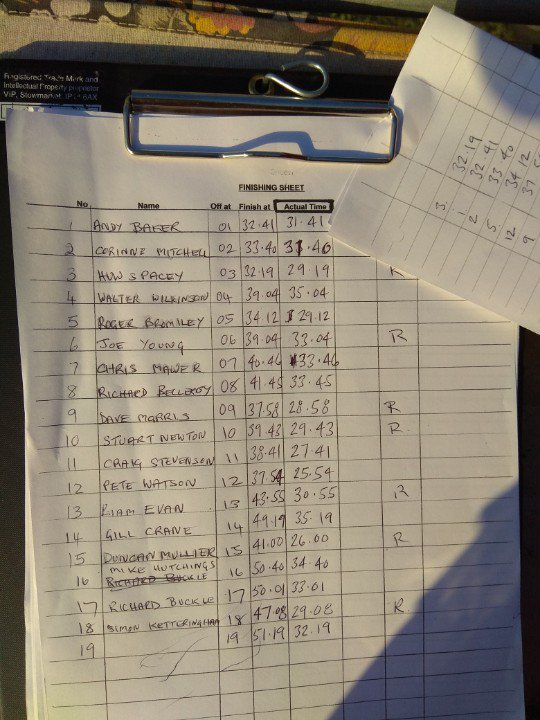 Registered Trade Mark and
Intellectual Property proprietor
VIP, Stowmarket, IP14 6AX
FINISHING SHEET
No Name Off at Finish at Actual Time
1 ANDY BAKER 01 32.41 31.41
2 CORINNE MITCHELL 02 33.40 31.40
3 HUW SPACEY 03 32.19 29.19 R
4 WALTER WILKINSON 04 39.04 35.04
5 ROGER BROMILEY 05 34.12 29.12
6 JOE YOUNG 06 39.04 33.04 R
7 CHRIS MAWER 07 40.46 33.46
8 RICHARD 08 41.45 33.45
9 DAVE MORRIS 09 37.58 28.58 R
10 STUART NEWTON 10 39.43 29.43 R.
11 CRAIG STEVENSON 11 38.41 27.41
12 PETE WATSON 12 37.54 25.54
13 LIAM EVAN 13 43.55 30.55 R
14 GILL CRANE 14 49.19 35.19
15 DUNCAN MULLIER 15 41.00 26.00 R
MIKE HUTCHINGS
16 RICHARD BUCKLE 16 50.40 34.40
17 RICHARD BUCKLE 17 50.01 33.01
18 SIMON KETTERINGHAM 18 47.08 29.08 R
19 19 51.19 32.19
3
1 32 19
2 32 41
5 33 40
12 34 12
9